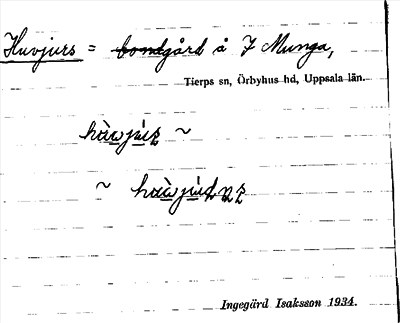 Huvjurs = bondgård å 7 Munga,
Tierps sn, Örbyhus hd, Uppsala län.
~
~
Ingegärd Isaksson 1934.